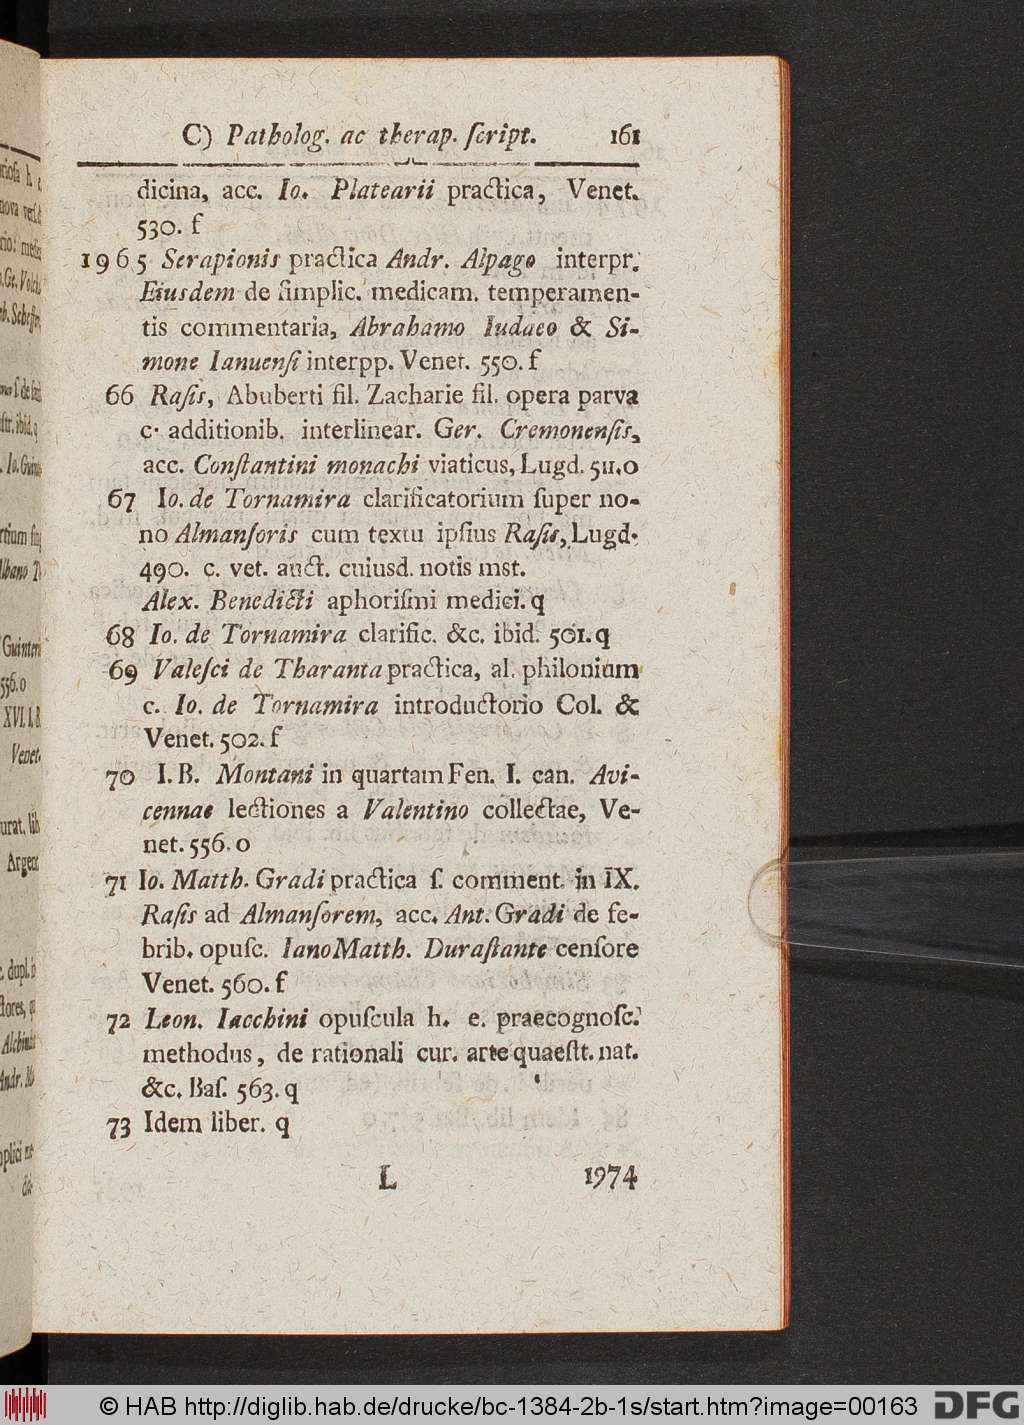 C) Patholog. ac therap. ſcript. 161
dicina, acc. Io. Platearii practica, Venet.
530. f
1965 Serapionis practica Andr. Alpago interpr.
Eiusdem de ſimplic. medicam. temperamen-
tis commentaria, Abrahamo Iudaeo & Si-
mone Ianuenſi interpp. Venet. 550. f
66 Raſis, Abuberti fil. Zacharie fil. opera parva
c. additionib. interlinear. Ger. Cremonenſis,
acc. Conſtantini monachi viaticus, Lugd. 511. o
67 Io. de Tornamira clarificatorium ſuper no-
no Almanſoris cum textu ipſius Raſis, Lugd.
490. c. vet. auct. cuiusd. notis mst.
Alex. Benedicti aphoriſmi medici. q
68 Io. de Tornamira clarific. &c. ibid. 501. q
69 Valeſci de Tharanta practica, al. philonium
c. Io. de Tornamira introductorio Col. &
Venet. 502. f
70 I. B. Montani in quartam Fen. I. can. Avi-
cennae lectiones a Valentino collectae, Ve-
net. 556. o
71 Io. Matth. Gradi practica ſ. comment. in IX.
Raſis ad Almanſorem, acc. Ant. Gradi de fe-
brib. opuſc. Iano Matth. Duraſtante cenſore
Venet. 560. f
72 Leon. Iacchini opuſcula h. e. praecognoſc.
methodus, de rationali cur. arte quaeſtt. nat.
&c. Baſ. 563. q
73 Idem liber. q
L 1974
© HAB http://diglib.hab.de/drucke/bc-1384-2b-1s/start.htm?image=00163 DFG